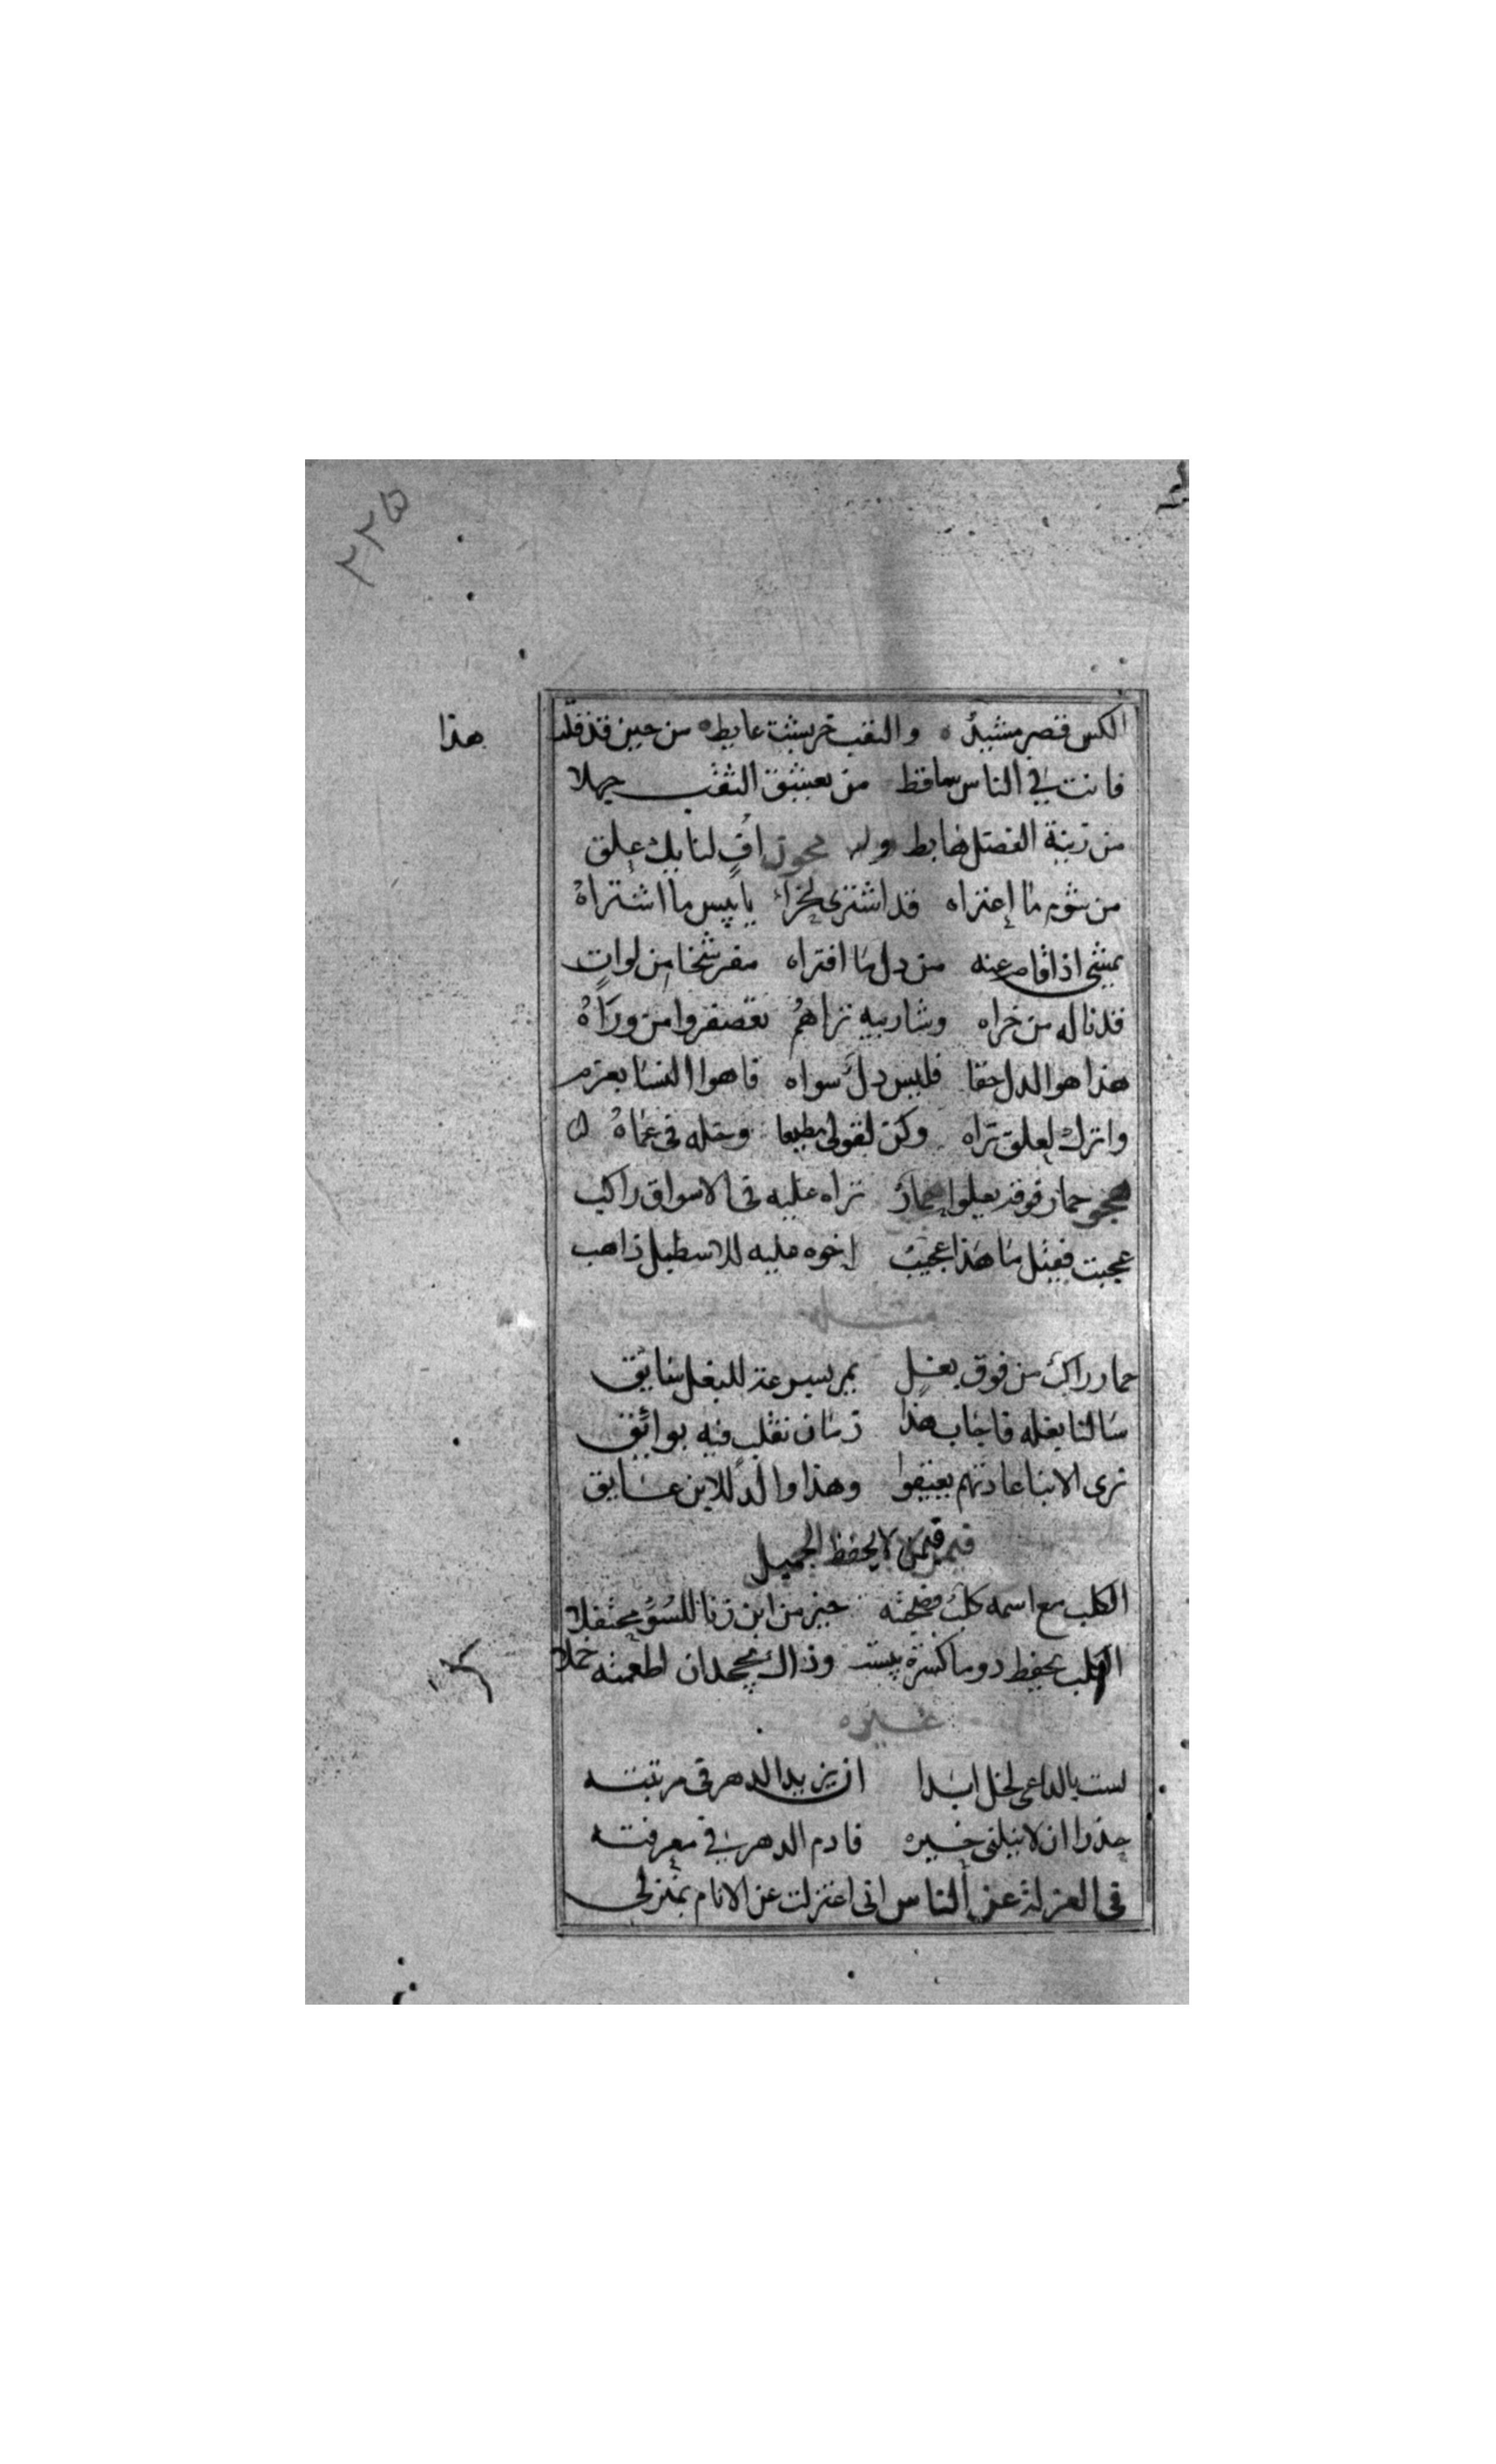 ٢٢٥
الكس قصر مشيد والنقب خربشت عايط من حين قد قلت
هذا
فانت في الناس ساقط من يعشق الثقب جهلا
من زينة الفضل هابط وله هجو في اف لنا بك علق
من شوم ما إعتراه قد اشترى لخراء يا بيس ما اشتراه
يمشي اذا قام عنه من دل ما افتراه مفرشخا من لوات
قد ناله من خراه وشاربيه تراهم تعصفروا من وراه
هذا هو الدل حقا فليس دل سواه فاهوا النسا بعزم
واترك لعلق تراه وكن لقولي مطيعا وخله في عماه
هجو حمار فوقه يعلوا حمار تراه عليه في الاسواق راكب
عجبت فقيل ما هذا عجيب اخوه مليه للاسطبل ذاهب
حمار راكب من فوق بغل يمر بسرعة للبغل سايق
سالنا بغله فاجاب هذا زمان تقلب فيه بوائق
ترى الابنا عادتهم يعنفوا وهذا والد للابن عايق
فيمن لا يحفظ الجميل
الكلب مع اسمه كلب فضحته خير من ابن زنا للسوء محتفلا
الكلب يحفظ دوما كسرة يبست وذاك يجحد ان اطعمته حملا
غيره
لست بالداعي لخل ابدا ان يزيد الدهر في مرتبته
حذرا ان لا نبلني خيره فادم الدهر في معرفته
في العزلة عن الناس اني اعتزلت عن الانام بمنزلي